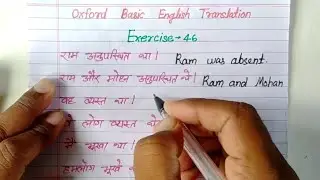 Oxford Basic English Translation
Exercise-46
राम अनुपस्थित था। Ram was absent.
राम और मोहन अनुपस्थित थे। Ram and Mohan
वह व्यस्त था।
लोग व्यस्त थे
मैं भूखा था।
हमलोग भूखे थे